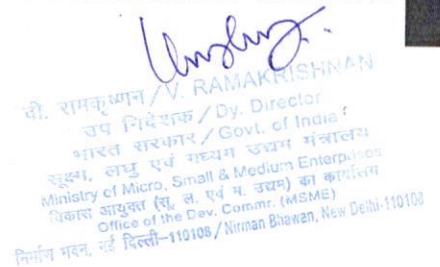 वी. रामकृष्णन / V. RAMAKRISHNAN
उप निदेशक / Dy. Director
भारत सरकार / Govt. of India
सूक्ष्म, लघु एवं मध्यम उद्यम मंत्रालय
Ministry of Micro, Small & Medium Enterprises
विकास आयुक्त (सू. ल. एवं म. उद्यम) का कार्यालय
Office of the Dev. Commr. (MSME)
निर्माण भवन, नई दिल्ली-110108 / Nirman Bhawan, New Delhi-110108